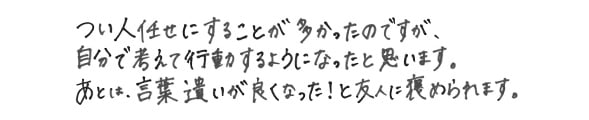 つい人任せにすることが多かったのですが、
自分で考えて行動するようになったと思います。
あとは、言葉遣いが良くなった!と友人に褒められます。